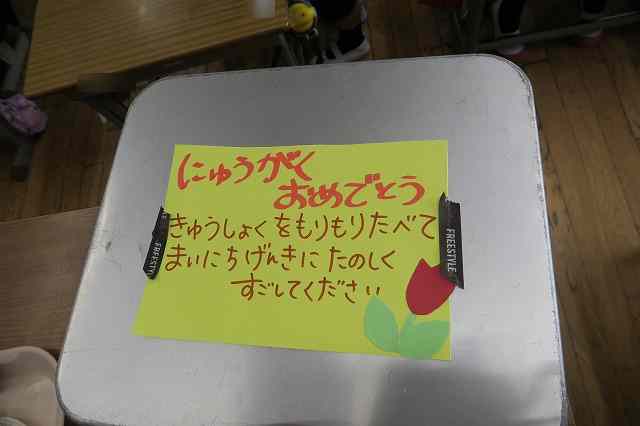 にゅうがく
おめでとう
きゅうしょくをもりもりたべて
まいにちげんきにたのしく
すごしてください
FREESTYLE
FREESTYLE